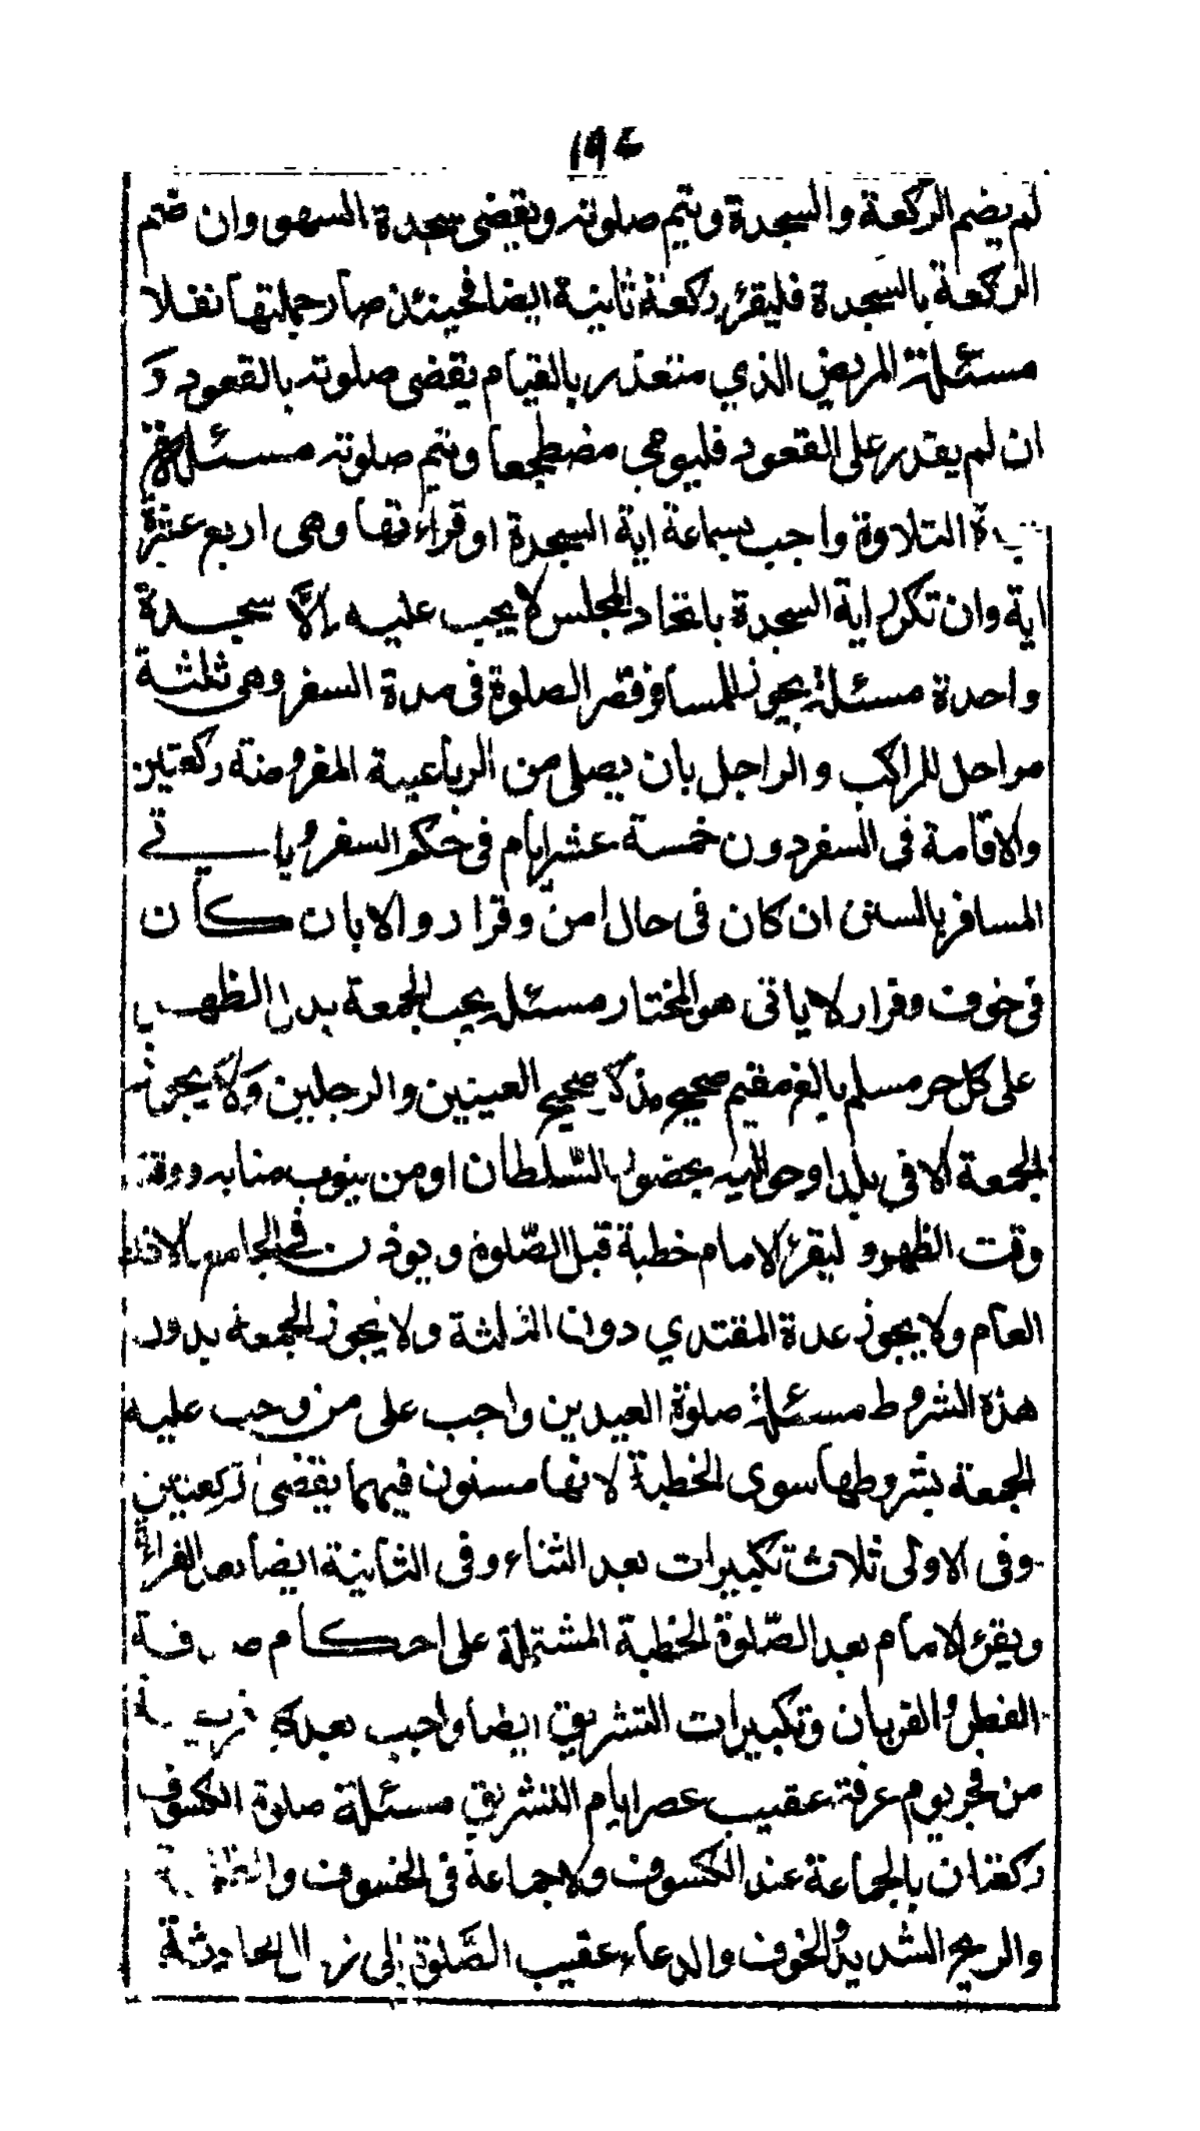 ١٩٤
لم يضم الركعة والسجدة ويتم صلوته ويقضى سجدة السهو وان ضم
الركعة بالسجدة فليقرء ركعة ثانية ايضا فحينئذ صار جملتها نفلا
مسئلة المريض الذي متعذر بالقيام يقضى صلوته بالقعود و
ان لم يقدر على القعود فليومى مضطجعا ويتم صلوته مسئلة
التلاوة واجب بسماعة اية السجدة او قراءتها وهى اربع عشرة
اية وان تكرر اية السجدة باتحاد المجلس لا يجب عليه إلّا سجدة
واحدة مسئلة يجوز للمسافر قصر الصلوة فى مدة السفر وهى ثلثة
مراحل للراكب والراجل بان يصلى من الرباعية المفروضة ركعتين
والاقامة فى السفر دون خمسة عشر ايام فى حكم السفر و ياتى
المسافر بالسنن ان كان فى حال امن وقرار والا بان كان
فى خوف وفرار لا ياتى هو المختار مسئلة يجب الجمعة بدل الظهر
على كل حر مسلم بالغ مقيم صحيح مذكر صحيح العينين والرجلين وَلَا يجوز
الجمعة الا فى بلد او حواليه بحضور السّلطان او من ينوب منابه ووقته
وقت الظهر و ليقرء الامام خطبة قبل الصّلوة و يوذن فى الجامع بالاذن
العام ولا يجوز عدة المقتدي دون الثلثة ولا يجوز الجمعة بدون
هذه الشروط مسئلة صلوة العيدين واجب على من وجب عليه
الجمعة بشروطها سوى الخطبة لانها مسنون فيهما يقضى ركعتين
وفى الاولى ثلاث تكبيرات بعد الثناء وفى الثانية ايضا بعد القراءة
ويقرء الامام بعد الصّلوة الخطبة المشتملة على احكام صدقة
الفطر والقربان وتكبيرات التشريق ايضا واجب بعد كل
من فجر يوم عرفة عقيب عصر ايام التشريق مسئلة صلوة الكسوف
ركعتان بالجماعة عند الكسوف ولا جماعة فى الخسوف
والريح الشديد والخوف والدعاء عقيب الصَّلوة إلى زوال الحادثة